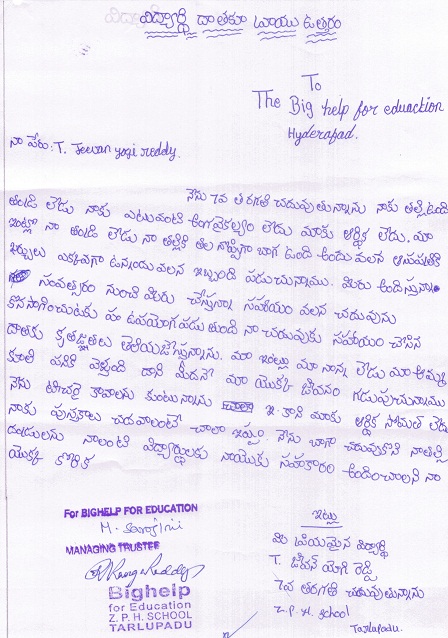 విద్యార్థి దాతకూ వ్రాయు ఉత్తరం
To
The Big help for eduaction
Hyderapad.
నా పేరు: T. Jeevan yogi reddy.
నేను 7వ తరగతి చదువుతున్నాను నాకు తల్లి ఉంది
తండ్రి లేడు నాకు ఎటువంటి అంగవైకల్యం లేదు మాకు ఆర్థిక లేదు. మా
ఇంట్లో నా తండ్రి లేడు నా తల్లికి తల నొప్పిగా బాగ ఉంది అందు వలన ఆసుపత్రి
ఖర్చులు ఎక్కువగా ఉన్నందు వలన ఇబ్బంది పడుచున్నాము. మీరు అందిస్తున్న
సంవత్సరం నుంచి మీరు చేస్తున్న సహాయం వలన చదువును
కొనసాగించుటకు ఉపయోగపడుతుంది నా చదువుకు సహాయం చేసిన
దాతకు కృతజ్ఞతలు తెలియజేస్తున్నాను. మా ఇంట్లు మా నాన్న లేడు మా అమ్మ
కూలి పనికి వెళ్తుంది దాని మీదనే మా యొక్క జీవనం గడుపుచున్నాము
నేను టీచరై కావాలను కుంటున్నాను కాని మాకు ఆర్థిక సోమత లేదు
నాకు పుస్తకాలు చదవాలంటే చాలా ఇష్టం. నేను బాగా చదువుకొని నాతల్లి
నాలంటి విద్యార్థులకు నాయొకు సహకారం అందించాలని నా
యొక్క కోరిక
For BIGHELP FOR EDUCATION
M. Sarojini
MANAGING TRUSTEE
Bighelp
for Education
Z. P. H. SCHOOL
TARLUPADU
ఇట్లు
మీ ప్రియమైన విద్యార్థి
T. జీవన్ యోగి రెడ్డి
7వ తరగతి చదువుతున్నాను
Z.P. H. School
Tarlupadu.